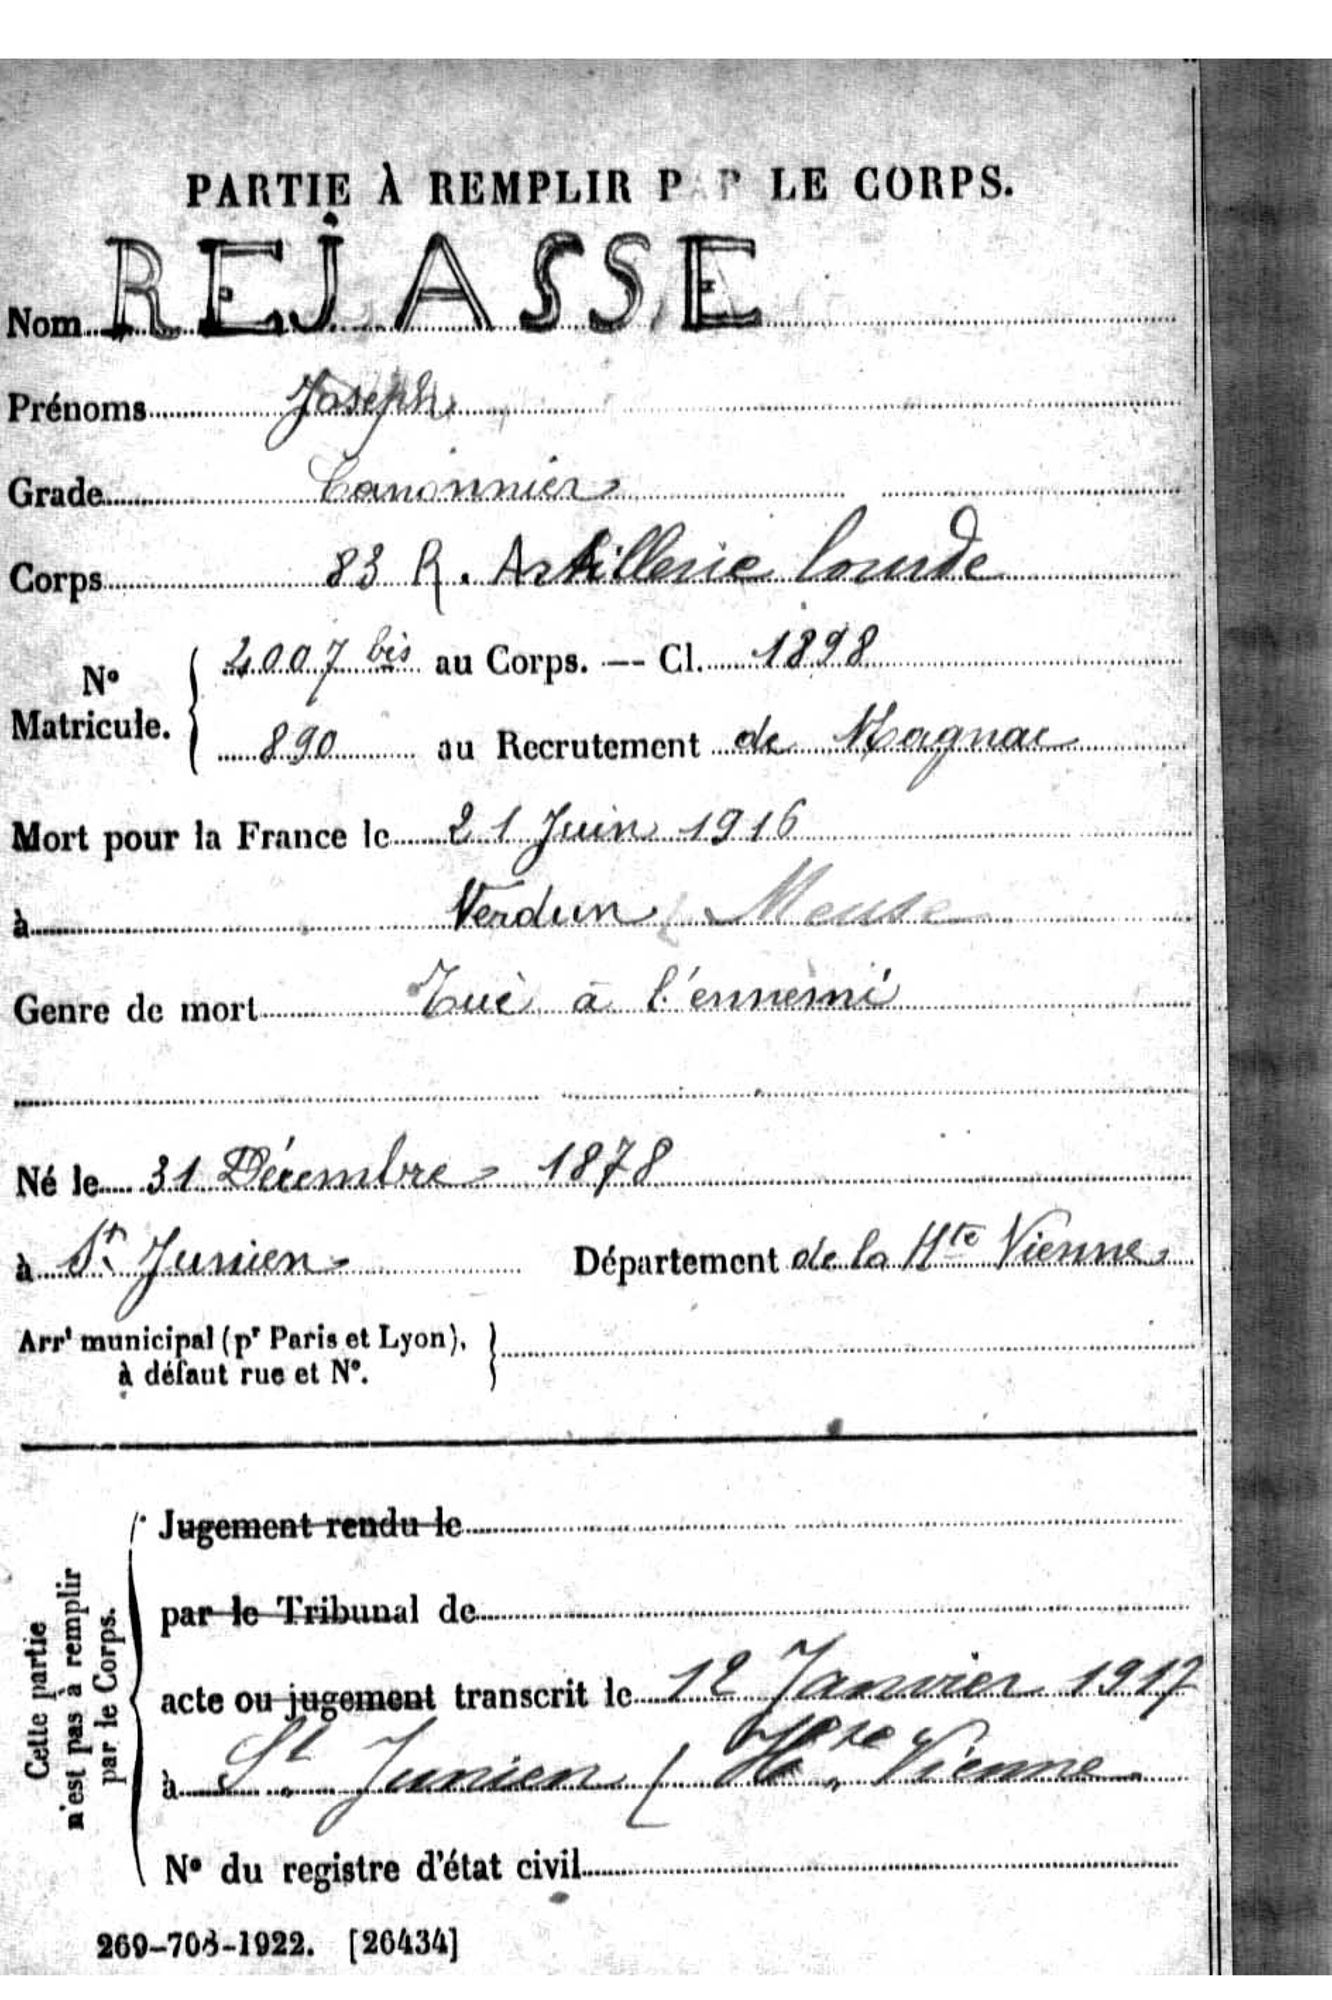 PARTIE À REMPLIR PAR LE CORPS.
Nom REJASSE
Prénoms Joseph
Grade Canonnier
Corps 83 R. Artillerie lourde
N° Matricule. { 2007 bis au Corps. — Cl. 1898
890 au Recrutement de Magnac
Mort pour la France le 21 Juin 1916
à Verdun Meuse
Genre de mort Tué à l'ennemi
Né le 31 Décembre 1878
à St. Junien Département de la Hte Vienne
Arrt municipal (pr Paris et Lyon), }
à défaut rue et N°.
Cette partie
n'est pas à remplir
par le Corps.
Jugement rendu le
par le Tribunal de
acte ou jugement transcrit le 12 Janvier 1917
à St. Junien (Hte Vienne
N° du registre d'état civil
269-708-1922. [26434]